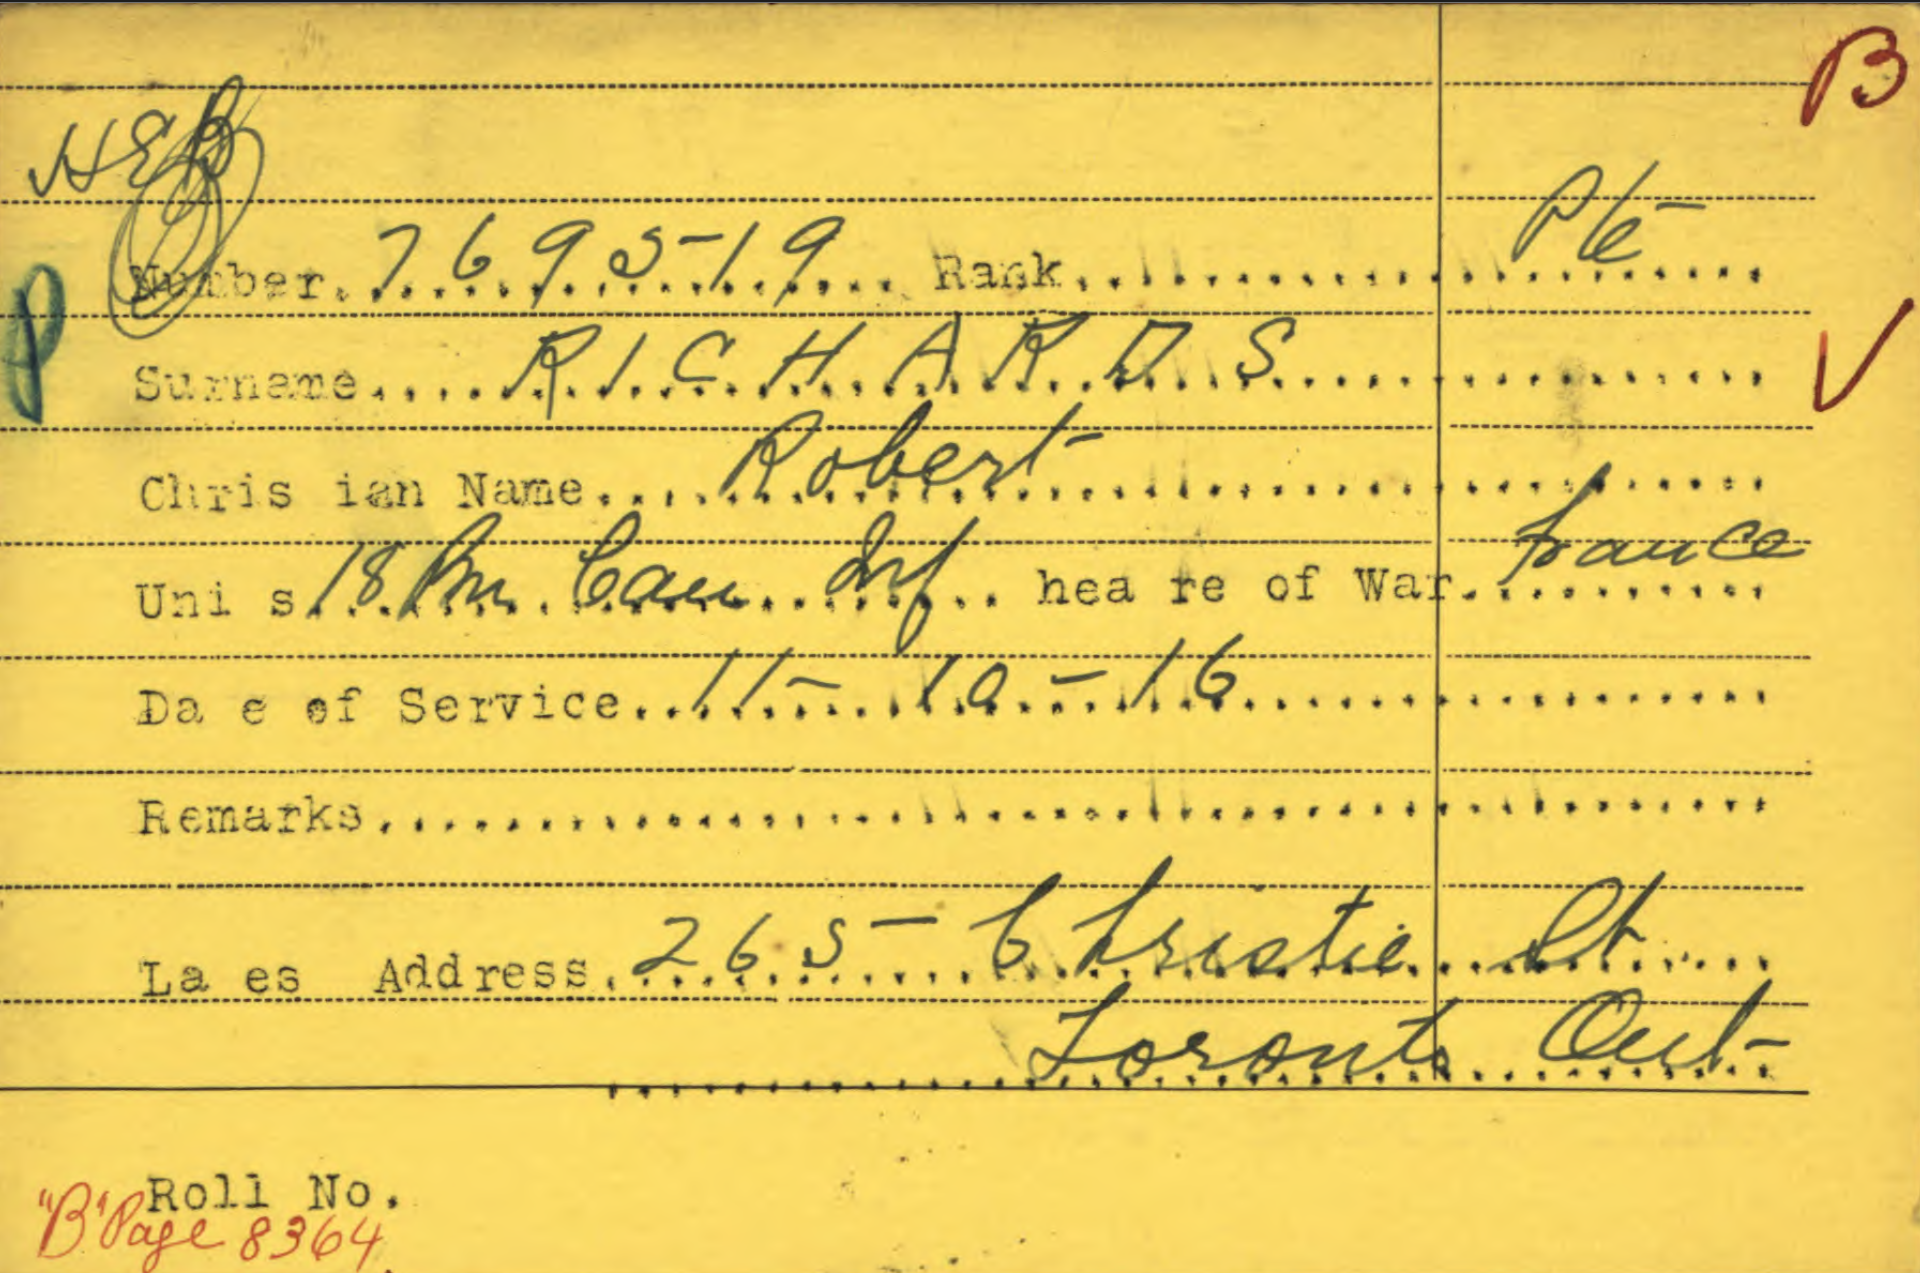 B
HEB
Number 769519 Rank Pte
P
Surname RICHARDS
V
Chris ian Name Robert
Uni s 18 Bn. Can. Inf hea re of War France
Da e of Service 11-10-16
Remarks
La es Address 265 Christie St
Toronto Ont
Roll No.
"B" Page 8364